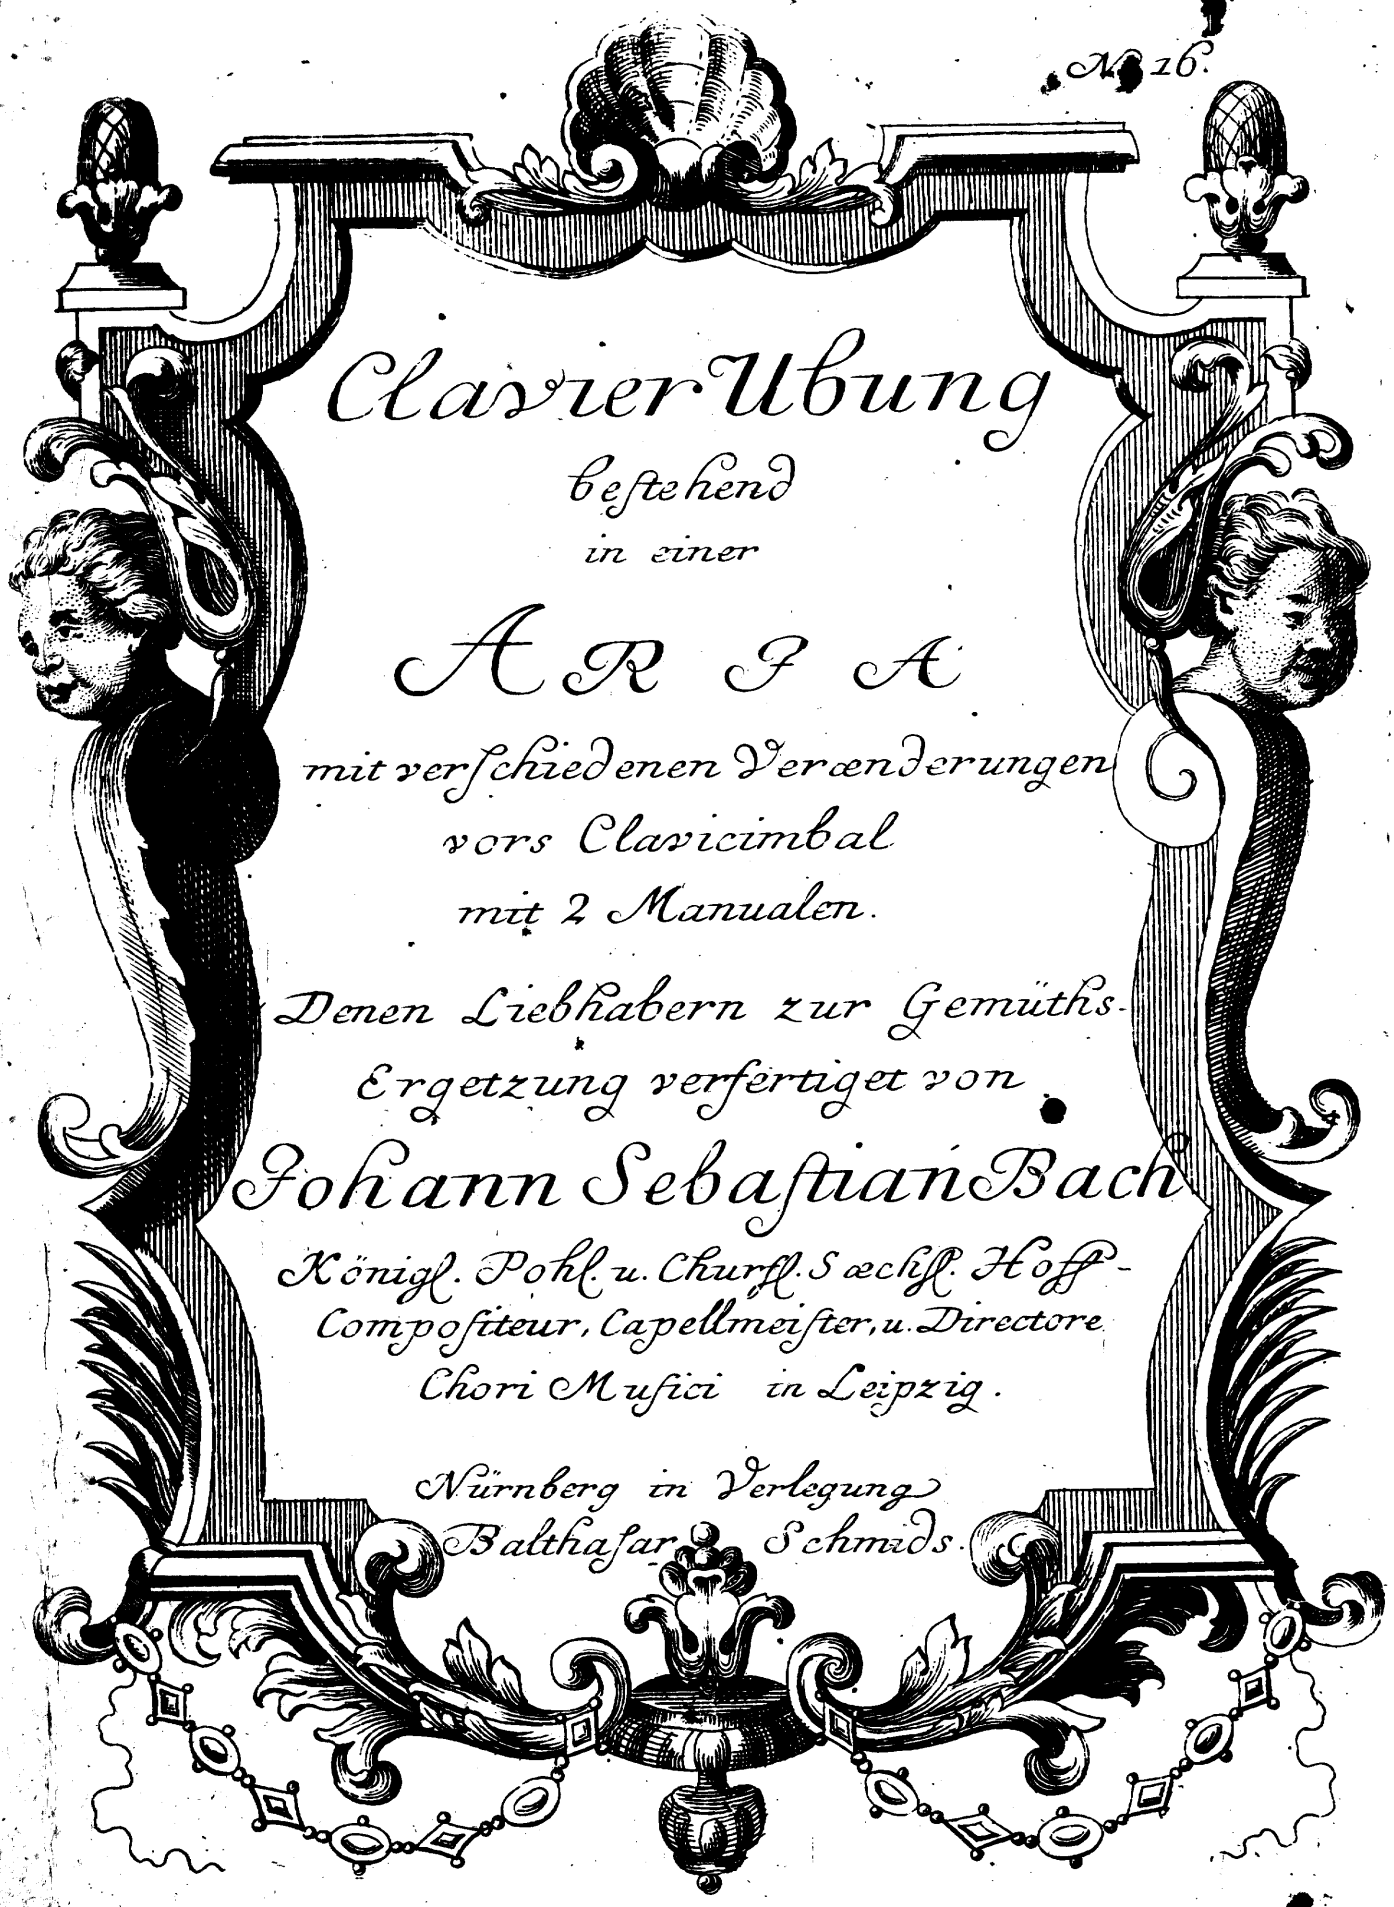 No 16.
Clavier Ubung
bestehend
in einer
ARIA
mit verschiedenen Verænderungen
vors Clavicimbal
mit 2 Manualen.
Denen Liebhabern zur Gemüths-
Ergetzung verfertiget von
Johann Sebastian Bach
Königl. Pohl. u. Churfl. Sæchsl. Hoff-
Compositeur, Capellmeister, u. Directore
Chori Musici in Leipzig.
Nürnberg in Verlegung
Balthasar Schmids.